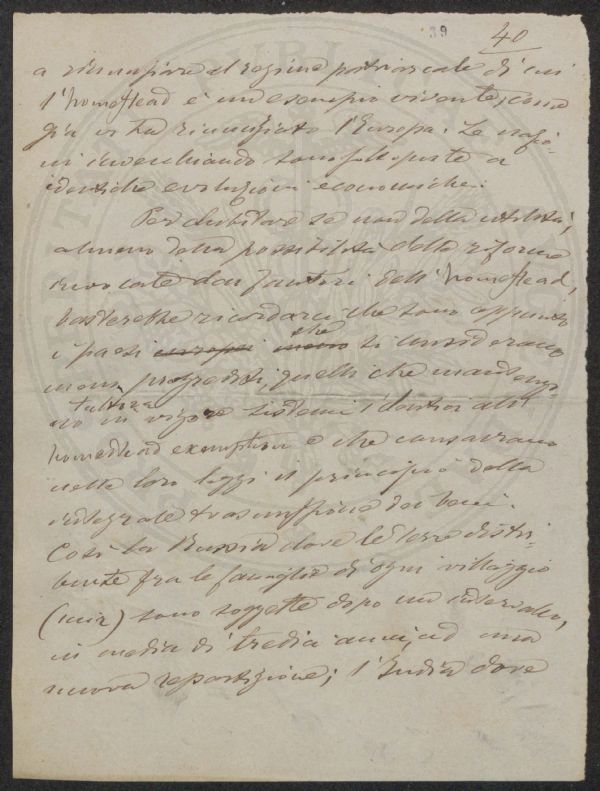 39
40
a rinunziare al regime patriarcale di cui
l'homestead è un esempio vivente, come
già vi ha rinunziato l'Europa. Le nazio-
ni invecchiando sono sottoposte a
identiche evoluzioni economiche.
Per dubitare se non della utilità,
almeno della possibilità delle riforme
invocate dai fautori dell'homestead,
basterebbe ricordarci che sono appunto
i paesi europei meno che si considerano
meno progrediti, quelli che manten-
gono tuttora in vigore sistemi identici all'
homestead exemption e che consacrano
nelle loro leggi il principio della
integrale trasmissione dei beni.
Così la Russia dove le terre distri-
buite fra le famiglie di ogni villaggio
(mir) sono soggette dopo un intervallo,
in media di tredici anni, ad una
nuova repartizione; l'India dove